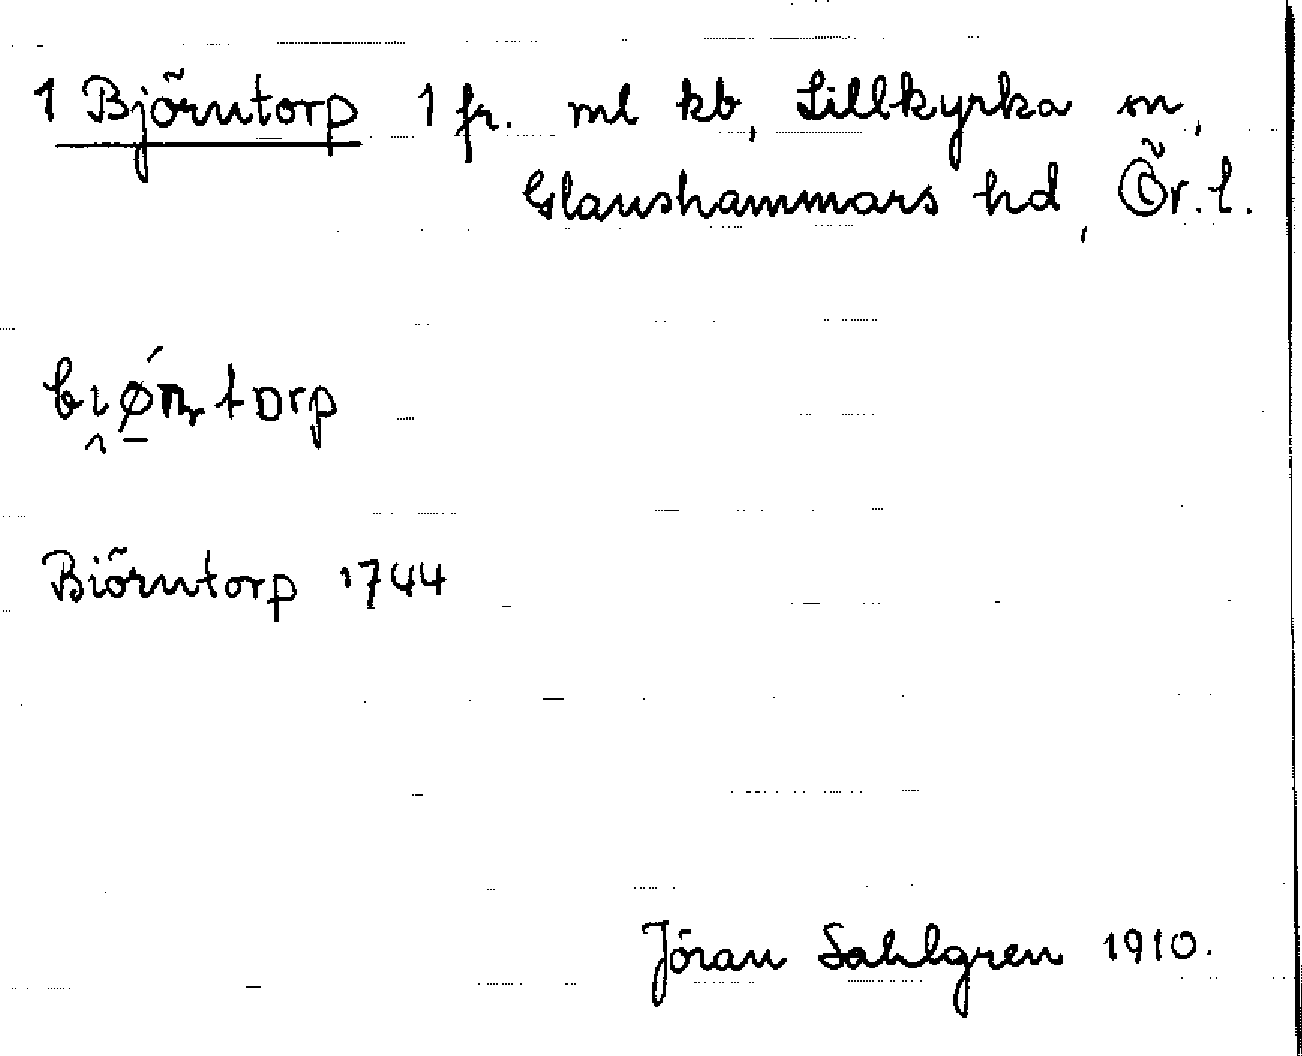 1 Björntorp 1 fr. ml kb, Lillkyrka sn,
Glanshammars hd, Ör. l.
Biörntorp 1744
Jöran Sahlgren 1910.